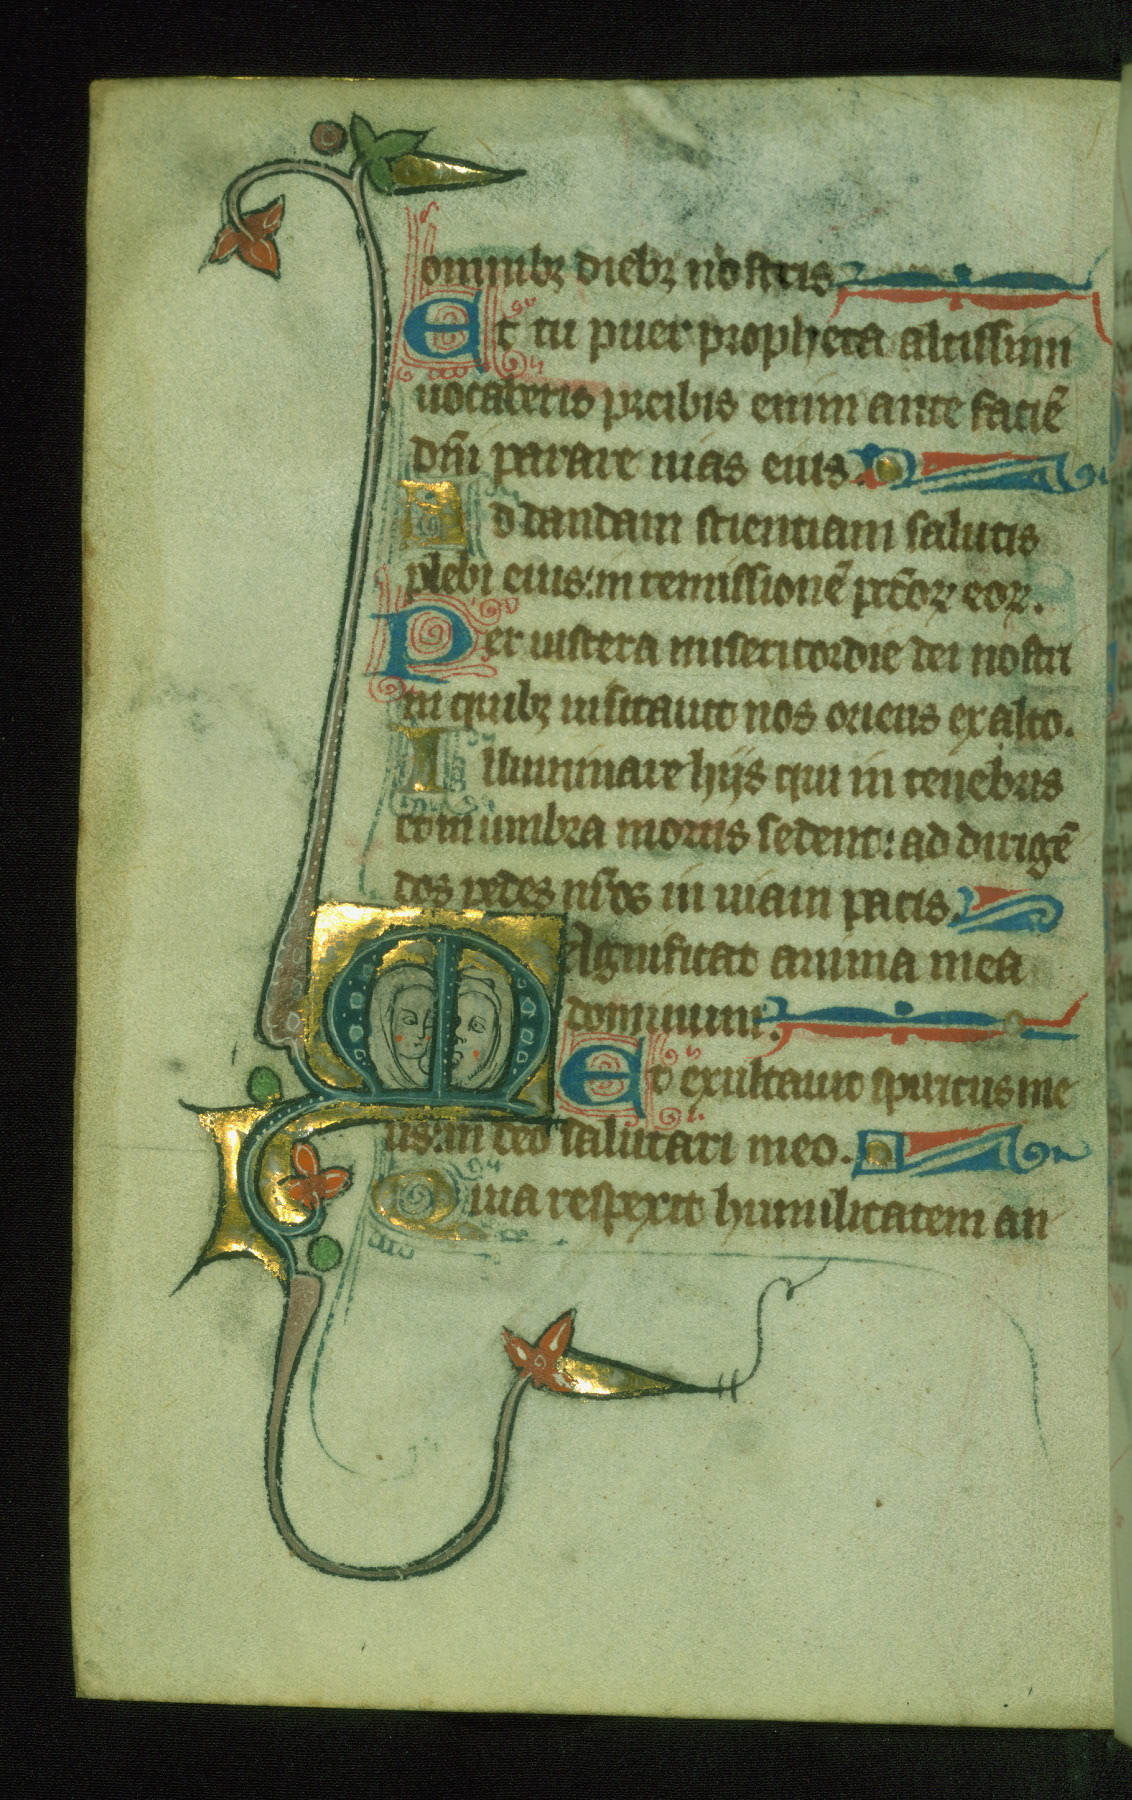 omnibꝫ diebꝫ nostris
Et tu puer propheta altissimi
uocaberis preibis enim ante faciē
dn̄i parare uias eius.
Ad dandam scientiam salutis
plebi eius: in remissionē pctōꝝ eoꝝ.
Per uiscera misericordie dei nostri
in quibꝫ uisitauit nos oriens ex alto.
Illuminare hijs qui in tenebris
et in umbra mortis sedent: ad dirigē
dos pedes nr̄os in uiam pacis.
Magnificat anima mea
dominum.
Et exultauit spiritus me
us: in deo salutari meo.
Quia respexit humilitatem an